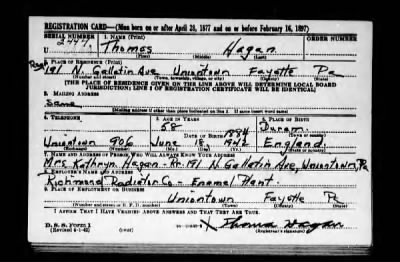 REGISTRATION CARD—(Men born on or after April 28, 1877 and on or before February 16, 1897)
SERIAL NUMBER 1. NAME (Print) ORDER NUMBER
U 2447 Thomas Hagan
(First) (Middle) (Last)
2. PLACE OF RESIDENCE (Print)
191 N. Gallatin Ave Uniontown Fayette Pa
(Number and street) (Town, township, village, or city) (County) (State)
[THE PLACE OF RESIDENCE GIVEN ON THE LINE ABOVE WILL DETERMINE LOCAL BOARD
JURISDICTION; LINE 2 OF REGISTRATION CERTIFICATE WILL BE IDENTICAL]
3. MAILING ADDRESS
Same
[Mailing address if other than place indicated on line 2. If same insert word same]
4. TELEPHONE 5. AGE IN YEARS 6. PLACE OF BIRTH
58 Duram
DATE OF BIRTH 1884 (Town or county)
Uniontown 906 June 18 1942 England
7. NAME AND ADDRESS OF PERSON WHO WILL ALWAYS KNOW YOUR ADDRESS
Mrs Kathryn Hagan - 191 N. Gallatin Ave, Uniontown, Pa
8. EMPLOYER'S NAME AND ADDRESS
Richmond Radiator Co - Enamel Plant
9. PLACE OF EMPLOYMENT OR BUSINESS
Uniontown Fayette Pa
(Number and street or R. F. D. number) (Town) (County) (State)
I AFFIRM THAT I HAVE VERIFIED ABOVE ANSWERS AND THAT THEY ARE TRUE.
D. S. S. Form 1
(Revised 4-1-42) (over) Thomas Hagan
(Registrant's signature)